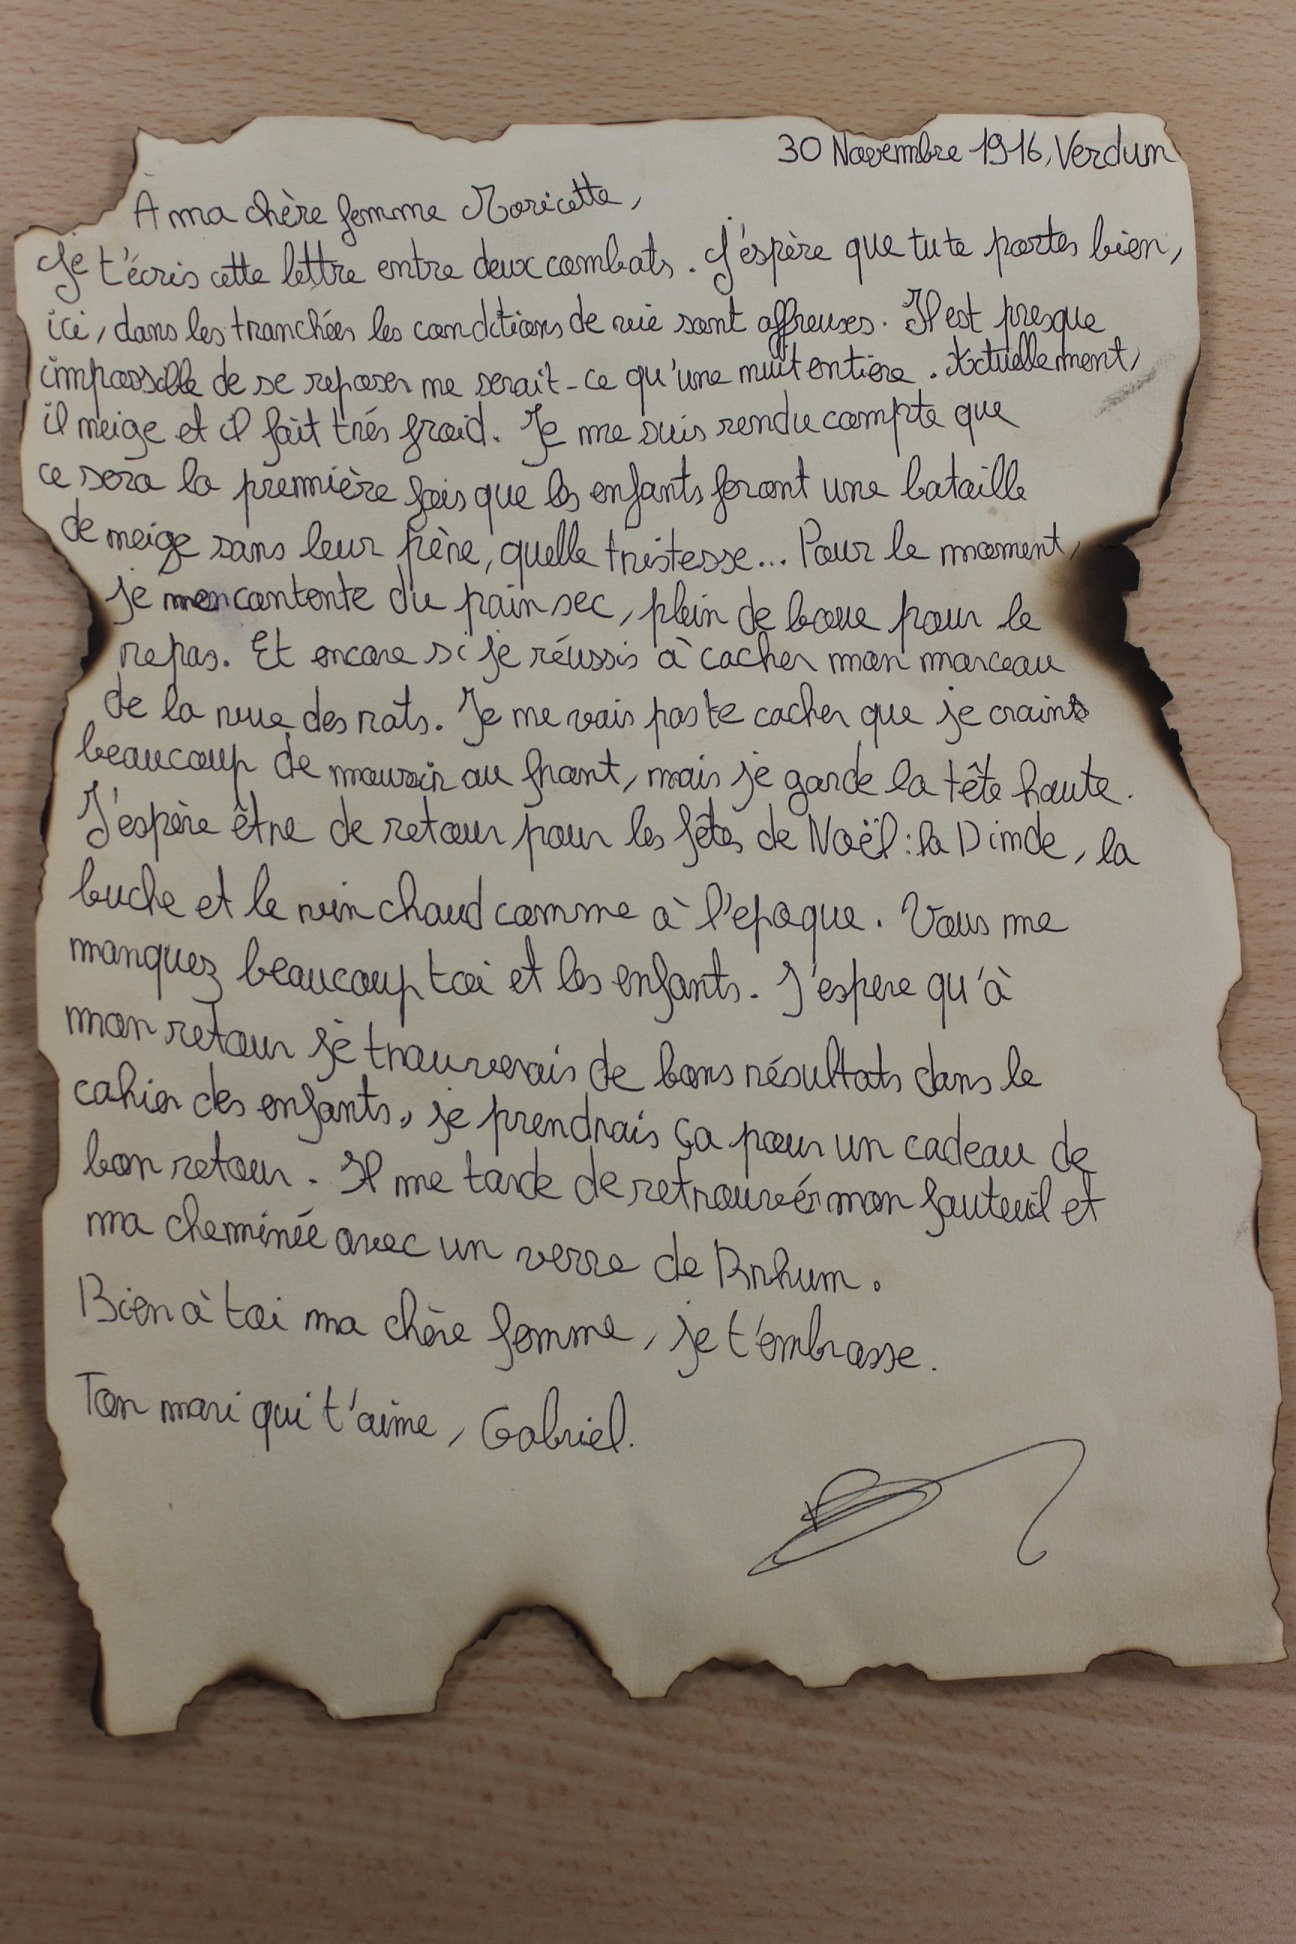 30 Novembre 1916, Verdun
À ma chère femme Moricette,
Je t'écris cette lettre entre deux combats. J'espère que tu te portes bien,
ici, dans les tranchées les conditions de vie sont affreuses. Il est presque
impossible de se reposer ne serait-ce qu'une nuit entiere. Actuellement,
il neige et il fait trés froid. Je me suis rendu compte que
ce sera la première fois que les enfants feront une bataille
de neige sans leur père, quelle tristesse... Pour le moment,
je me contente du pain sec, plein de boue pour le
repas. Et encore si je réussis à cacher mon morceau
de la vue des rats. Je ne vais pas te cacher que je crains
beaucoup de mourir au front, mais je garde la tête haute.
J'espère être de retour pour les fêtes de Noël : la Dinde, la
buche et le vin chaud comme à l'epoque. Vous me
manquez beaucoup toi et les enfants. J'espere qu'à
mon retour je trouverais de bons résultats dans le
cahier des enfants, je prendrais ça pour un cadeau de
bon retour. Il me tarde de retrouver mon fauteuil et
ma cheminée avec un verre de Rhum.
Bien à toi ma chère femme, je t'embrasse.
Ton mari qui t'aime, Gabriel.